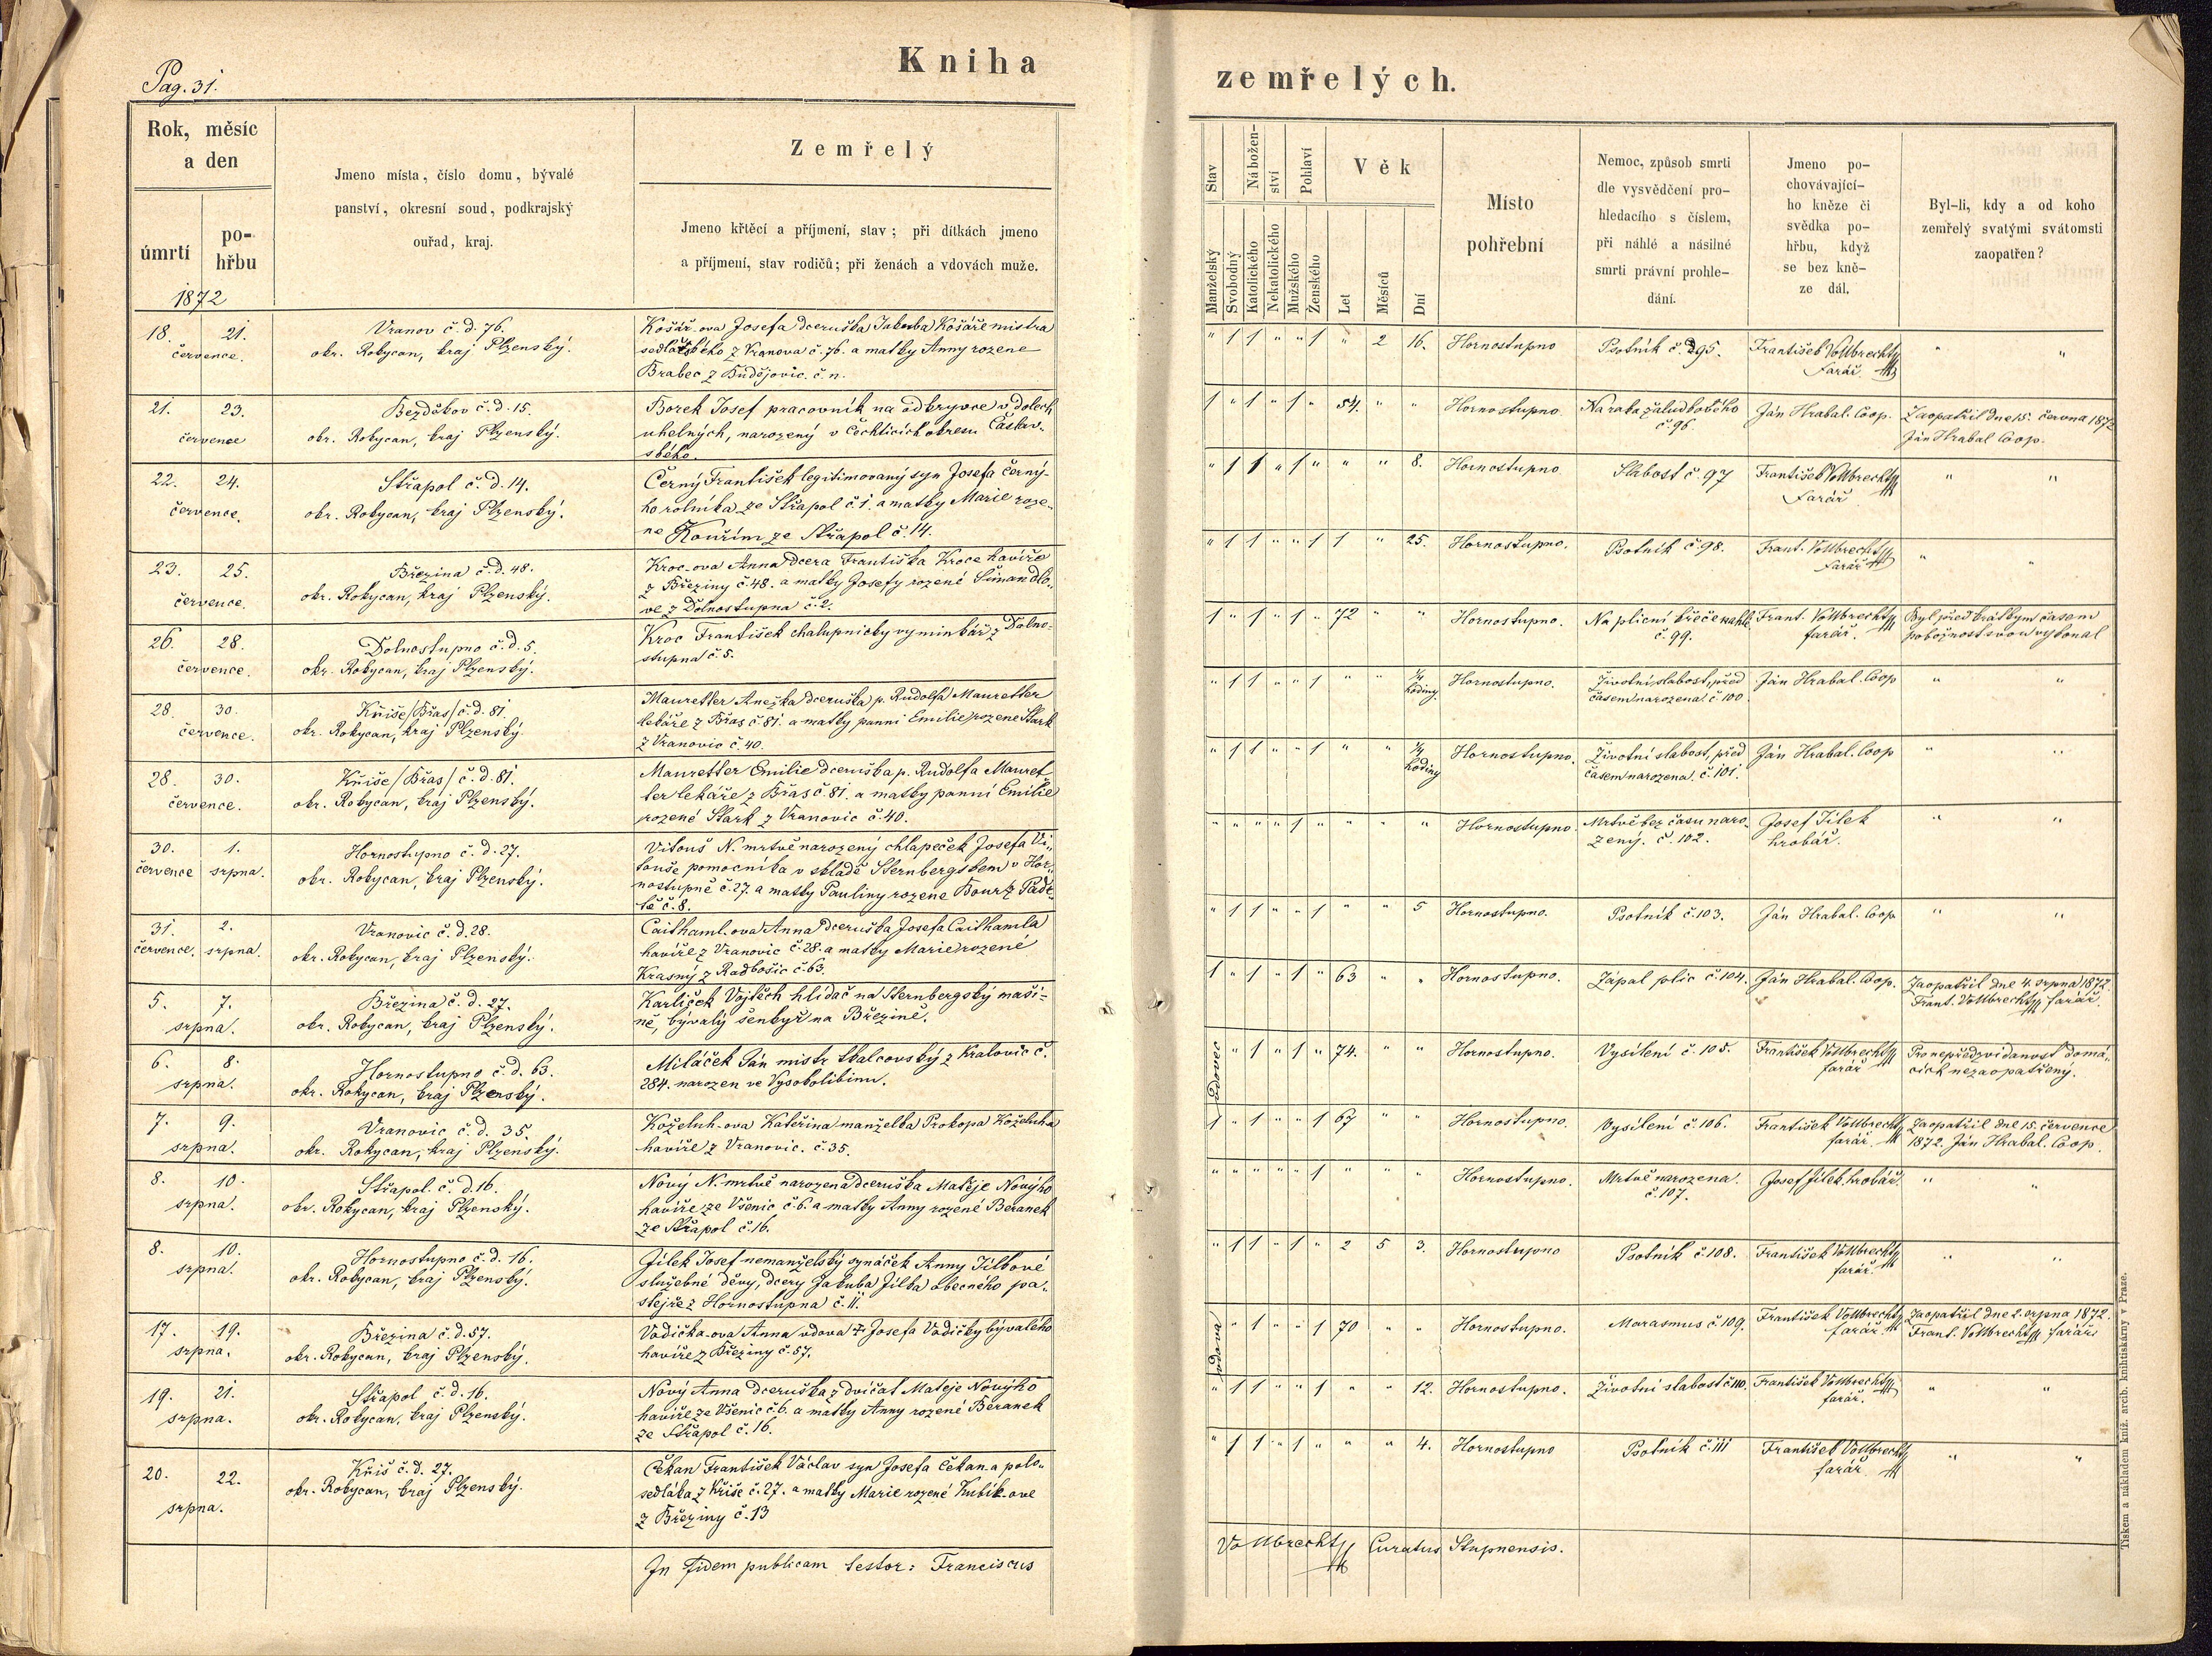 Pag. 31.
Kniha
zemřelých.
Rok, měsíc
a den
úmrtí
po-
hřbu
1872
Jmeno místa, číslo domu, bývalé
panství, okresní soud, podkrajský
ouřad, kraj.
Zemřelý
Jmeno křtěcí a příjmení, stav; při dítkách jmeno
a příjmení, stav rodičů; při ženách a vdovách muže.
Stav
Manželský
Svobodný
Nábožen-
ství
Katolického
Nekatolického
Pohlaví
Mužského
Ženského
Věk
Let
Měsíců
Dní
Místo
pohřební
Nemoc, způsob smrti
dle vysvědčení pro-
hledacího s číslem,
při náhlé a násilné
smrti právní prohle-
dání.
Jmeno po-
chovávající-
ho kněze či
svědka po-
hřbu, když
se bez kně-
ze dál.
Byl-li, kdy a od koho
zemřelý svatými svátomsti
zaopatřen?
18. 21.
července.
Vranov č. d. 76.
okr. Rokycan, kraj Plzenský.
Košář-ova Josefa dceruška Jakuba Košáře mistra
sedlářského z Vranova č. 76. a matky Anny rozene
Brabec z Budějovic. č. n.
" 1 1 " " 1 " 2 16. Hornostupno
Psotník č. 95.
František Vollbrecht
farář.
" "
21. 23.
července
Bezděkov č. d. 15.
okr. Rokycan, kraj Plzenský.
Borek Josef pracovník na odkryvce v dolech
uhelných, narozený v Čechticích okresu Čáslav-
ského.
1 " 1 " 1 " 54. " " Hornostupno.
Na raka žaludkového
č. 96.
Ján Hrabal. Coop.
Zaopatřil dne 15. června 1872
Ján Hrabal Coop.
22. 24.
července.
Střapol č. d. 14.
okr. Rokycan, kraj Plzenský.
Černý František legitimovaný syn Josefa Černý-
ho rolníka ze Střapol č. 1. a matky Marie roze-
ne Kouřím ze Střapol č. 14.
" 1 1 " 1 " " " 8. Hornostupno.
Slabost č. 97
František Vollbrecht
farář
" "
23. 25.
července.
Březina č. d. 48.
okr. Rokycan, kraj Plzenský.
Kroc-ova Anna dcera Františka Kroce havíře
z Březiny č. 48. a matky Josefy rozené Šimandlo-
ve z Dolnostupna č. 2.
" 1 1 " " 1 1 " 25. Hornostupno.
Psotník č. 98.
Frant. Vollbrecht
farář
" "
26. 28.
července.
Dolnostupno č. d. 5.
okr. Rokycan, kraj Plzenský.
Kroc František chalupnický vyminkář z Dolno-
stupna č. 5.
1 " 1 " 1 " 72 " " Hornostupno.
Na plicní křeče náhle
č. 99.
Frant. Vollbrecht
farář.
Byl před krátkým časem
pobožnost svou vykonal
28. 30.
července.
Kříše /Břas/ č. d. 81.
okr. Rokycan, kraj Plzenský.
Mauretter Anežka dceruška p. Rudolfa Mauretter
lekáře z Břas č. 81. a matky panni Emilie rozene Stark
z Vranovic č. 40.
" 1 1 " " 1 " " ¼
hodiny. Hornostupno.
Životní slabost, před
časem narozena. č. 100.
Ján Hrabal. Coop
" "
28. 30.
července.
Kříše /Břas/ č. d. 81.
okr. Rokycan, kraj Plzenský.
Mauretter Emilie dceruška p. Rudolfa Mauret-
ter lekáře z Břas č. 81. a matky panní Emilie
rozené Stark z Vranovic č. 40.
" 1 1 " " 1 " " ¼
hodiny Hornostupno.
Životní slabost, před
časem narozena. č. 101.
Ján Hrabal. Coop
" "
30. 1.
července srpna.
Hornostupno č. d. 27.
okr. Rokycan, kraj Plzenský.
Vitouš N. mrtvě narozený chlapeček Josefa Vi-
touše pomocníka v skladě Sternbergském v Hor-
nostupně č. 27. a matky Pauliny rozene Bour z Padr-
tě č. 8.
" " " " 1 " " " " Hornostupno.
Mrtvě bez času naro-
zený. č. 102.
Josef Jílek
hrobář.
" "
31. 2.
července. srpna.
Vranovic č. d. 28.
okr. Rokycan, kraj Plzenský.
Caithaml.ova Anna dceruška Josefa Caithamla
havíře z Vranovic č. 28. a matky Marie rozené
Krasný z Radkošic č. 63.
" 1 1 " " 1 " " 5 Hornostupno.
Psotník č. 103.
Ján Hrabal. Coop
" "
5. 7.
srpna.
Březina č. d. 27.
okr. Rokycan, kraj Plzenský.
Karlíček Vojtěch hlídač na Sternbergský maší-
ně, bývalý šenkyř na Březině.
1 " 1 " 1 " 63 " " Hornostupno.
Zápal plic č. 104.
Ján Hrabal. Coop.
Zaopatřil dne 4. srpna 1872.
Frant. Vollbrecht farář
6. 8.
srpna.
Hornostupno č. d. 63.
okr. Rokycan, kraj Plzenský.
Miláček Ján mistr tkalcovský z Kralovic č.
284. narozen ve Vysokolibinu.
vdovec " 1 " 1 " 74. " " Hornostupno.
Vysílení č. 105.
František Vollbrecht
farář
Pro nepředzvídanost domá-
cích nezaopatřený.
7. 9.
srpna.
Vranovic č. d. 35.
okr. Rokycan, kraj Plzenský.
Koželuh-ova Kateřina manželka Prokopa Koželuha
havíře z Vranovic. č. 35.
1 " 1 " " 1 67 " " Hornostupno.
Vysílení č. 106.
František Vollbrecht
farář.
Zaopatřil dne 15. července
1872. Ján Hrabal. Coop.
8. 10.
srpna.
Střapol. č. d. 16.
okr. Rokycan, kraj Plzenský.
Nový N. mrtvě narozena dceruška Matěje Nového
havíře ze Všenic č. 6. a matky Anny rozené Beranek
ze Střapol č. 16.
" " " " " 1 " " " Hornostupno.
Mrtvě narozena.
č. 107.
Josef Jílek hrobář.
" "
8. 10.
srpna.
Hornostupno č. d. 16.
okr. Rokycan, kraj Plzenský.
Jílek Josef nemanželský synáček Anny Jílkové
služebné děvy, dcery Jakuba Jílka obecného pa-
stejře z Hornostupna č. 11.
" 1 1 " 1 " 2 5 3. Hornostupno
Psotník č. 108.
František Vollbrecht
farář.
" "
17. 19.
srpna.
Březina č. d. 57.
okr. Rokycan, kraj Plzenský.
Vodička-ova Anna vdova † Josefa Vodičky bývalého
havíře z Březiny č. 57.
vdova " 1 " " 1 70 " " Hornostupno.
Marasmus č. 109.
František Vollbrecht
farář.
Zaopatřil dne 2. srpna 1872.
Frant. Vollbrecht farář
19. 21.
srpna.
Střapol č. d. 16.
okr. Rokycan, kraj Plzenský.
Nový Anna dceruška z dvíčat Mateje Nového
havíře ze Všenic č. 6. a matky Anny rozené Beranek
ze Střapol č. 16.
" 1 1 " " 1 " " 12. Hornostupno.
Životní slabost č. 110.
František Vollbrecht
farář.
" "
20. 22.
srpna.
Kříš č. d. 27.
okr. Rokycan, kraj Plzenský.
Čekan František Václav syn Josefa Čekan.a polo-
sedláka z Kříše č. 27. a matky Marie rozené Kubík-ove
z Březiny č. 13
" 1 1 " 1 " " " 4. Hornostupno
Psotník č. 111
František Vollbrecht
farář.
" "
In fidem publicam testor: Franciscus
Vollbrecht Curatus Stupnensis.
Tiskem a nákladem kníž. arcib. knihtiskárny v Praze.